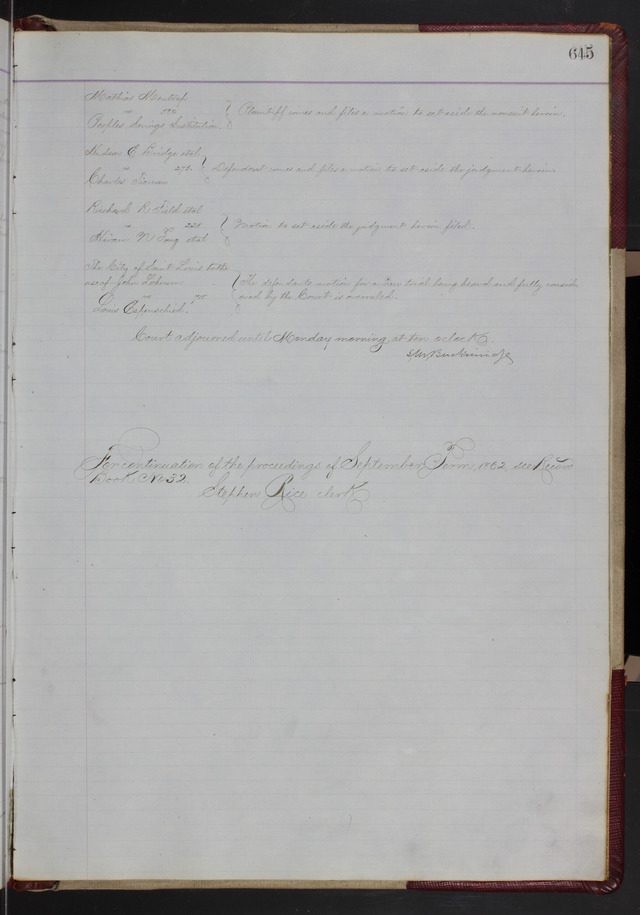 645
Mathias
vs 220 } Plaintiff comes and files a motion to set aside the nonsuit herein.
Peoples Savings Institution.
Hudson E Bridge etal
vs 275. } Defendant comes and files a motion to set aside the judgment herein
Charles
Richard R Field etal
vs 228 } Motion to set aside the judgment herein filed.
Hiram N Long etal
The City of Saint Louis to the
use of John
vs } The defendants motion for a New trial being heard and fully consid
Louis Espenschied. ered by the Court is overruled.
Court adjourned until Monday morning at ten oclock.
For continuation of the proceedings of September Term, 1862, see Record
Book No 32.
Stephen Rice clerk